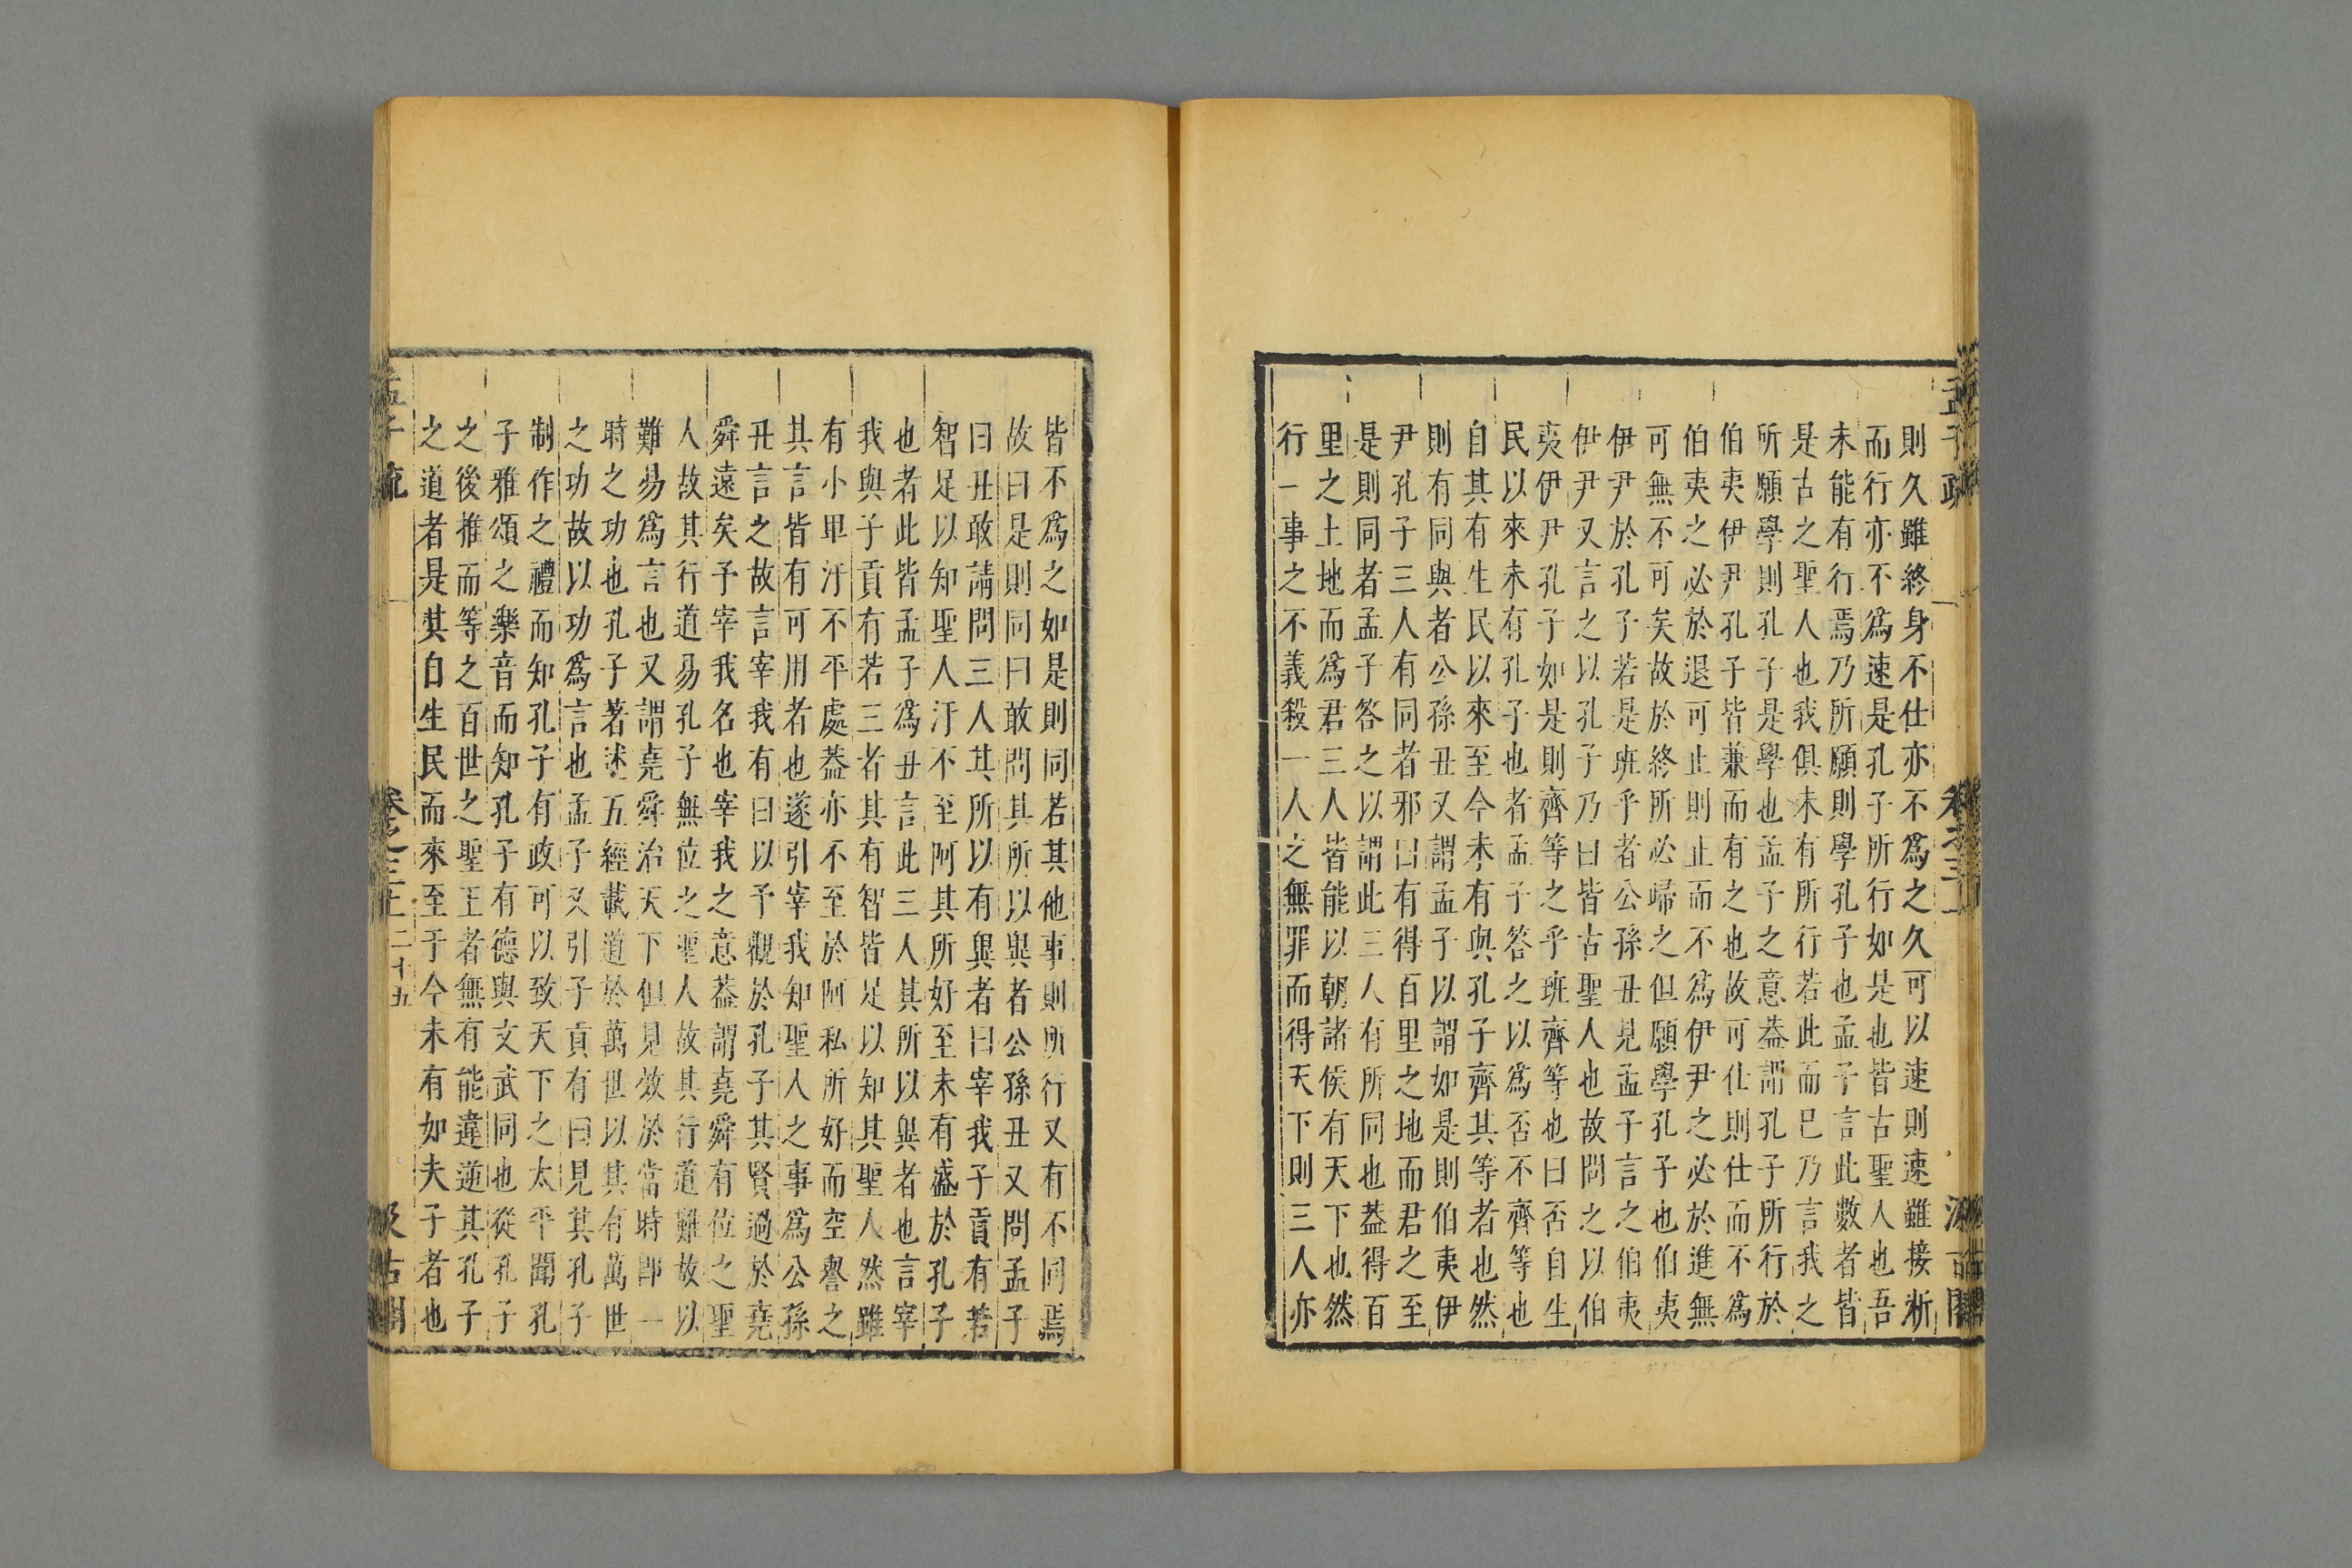 孟子疏
則久雖終身不仕亦不爲之久可以速則速雖接淅
而行亦不爲速是孔子所行如是也皆古聖人也吾
未能有行焉乃所願則學孔子也孟子言此數者皆
是古之聖人也我俱未有所行若此而已乃言我之
所願學則孔子是學也孟子之意蓋謂孔子所行於
伯夷伊尹孔子皆兼而有之也故可仕則仕而不為
伯夷之必於退可止則止而不為伊尹之必於進無
可無不可矣故於終所必歸之但願學孔子也伯夷
伊尹於孔子若是班乎者公孫丑見孟子言之伯夷
伊尹又言之以孔子乃曰皆古聖人也故問之以伯
夷伊尹孔子如是則齊等之乎班齊等也曰否自生
民以來未有孔子也者孟子答之以為否不齊等也
自其有生民以來至今未有與孔子齊其等者也然
則有同與者公孫丑又謂孟子以謂如是則伯夷伊
尹孔子三人有同者邪曰有得百里之地而君之至
是則同者孟子答之以謂此三人有所同也蓋得百
里之土地而爲君三人皆能以朝諸侯有天下也然
行一事之不義殺一人之無罪而得天下則三人亦
皆不爲之如是則同若其他事則所行又有不同焉
故曰是則同曰敢問其所以與者公孫丑又問孟子
曰丑敢請問三人其所以有與者曰宰我子貢有若
智足以知聖人汙不至阿其所好至未有盛於孔子
也者此皆孟子爲丑言此三人其所以與者也言宰
我與子貢有若三者其有智皆足以知其聖人然雖
有小卑汙不平處蓋亦不至於阿私所好而空譽之
其言皆有可用者也遂引宰我知聖人之事爲公孫
丑言之故言宰我有曰以予觀於孔子其賢過於堯
舜遠矣予宰我名也宰我之意蓋謂堯舜有位之聖
人故其行道易孔子無位之聖人故其行道難故以
難易爲言也又謂堯舜治天下但見效於當時卽一
時之功也孔子著述五經載道於萬世以其有萬世
之功故以功爲言也孟子又引子貢有曰見其孔子
制作之禮而知孔子有政可以致天下之太平聞孔
子雅頌之樂音而知孔子有德與文武同也從孔子
之後推而等之百世之聖王者無有能違逆其孔子
之道者是其自生民而來至于今未有如夫子者也
卷之三上 二十五